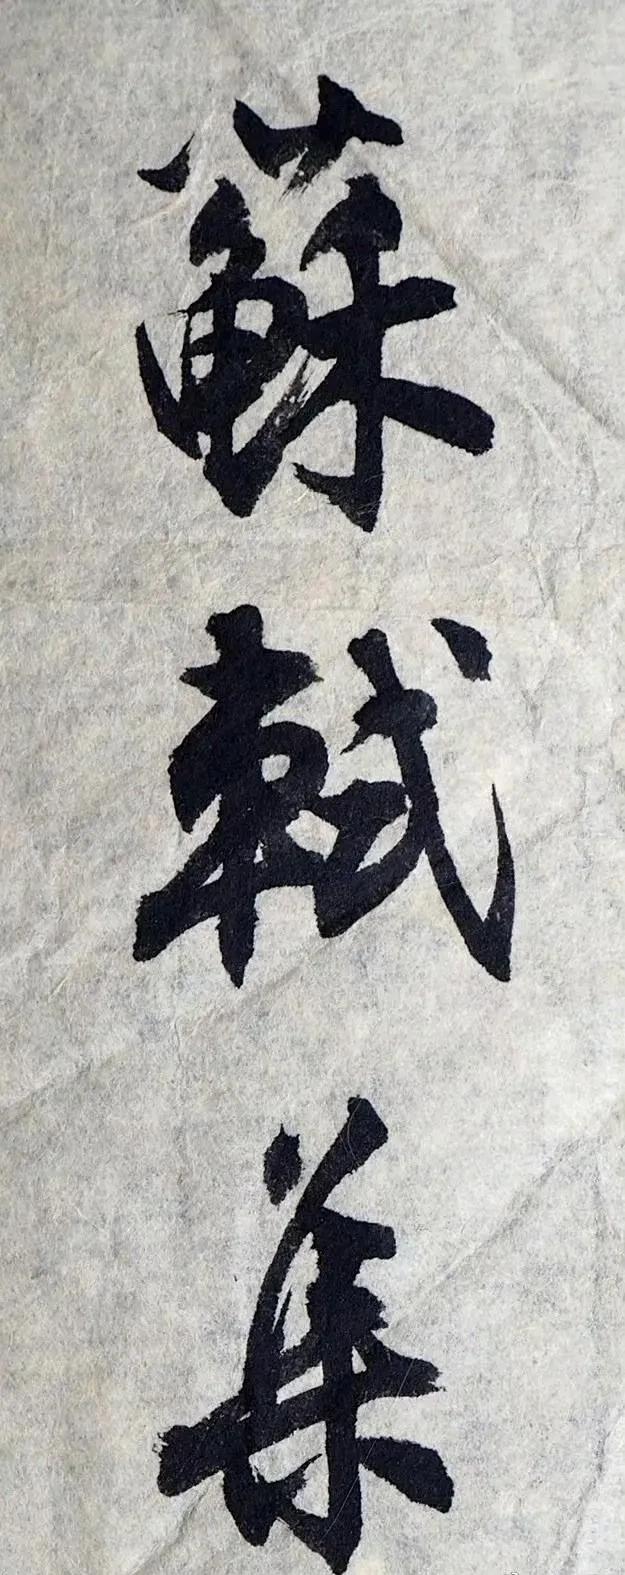 蘇軾集